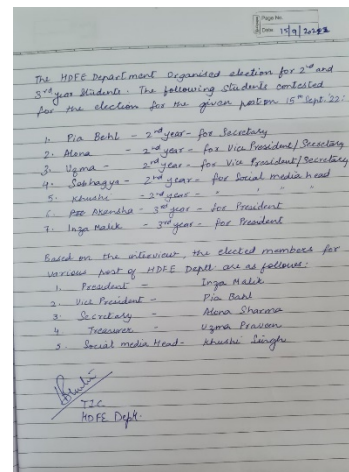 Page No.
Date 15/9/2022
The HDFE Department Organised election for 2nd and
3rd year Students. The following students contested
for the election for the given post on 15th Sept.'22:
1. Pia Bahl - 2nd year - for Secretary
2. Alena - 2nd year - for Vice President/Secretary
3. Uzma - 2nd year - for Vice President/Secretary
4. Sabhagya - 2nd year - for Social media head
5. Khushi - 2nd year - " " "
6. Akansha - 3rd year - for President
7. Inza Malik - 3rd year - for President
Based on the interview, the elected members for
various post of HDFE Deptt. are as follows:
1. President - Inza Malik
2. Vice President - Pia Bahl
3. Secretary - Alena Sharma
4 Treasurer - Uzma Praveen
5. Social media Head - Khushi Singh
TIC
HDFE Deptt.